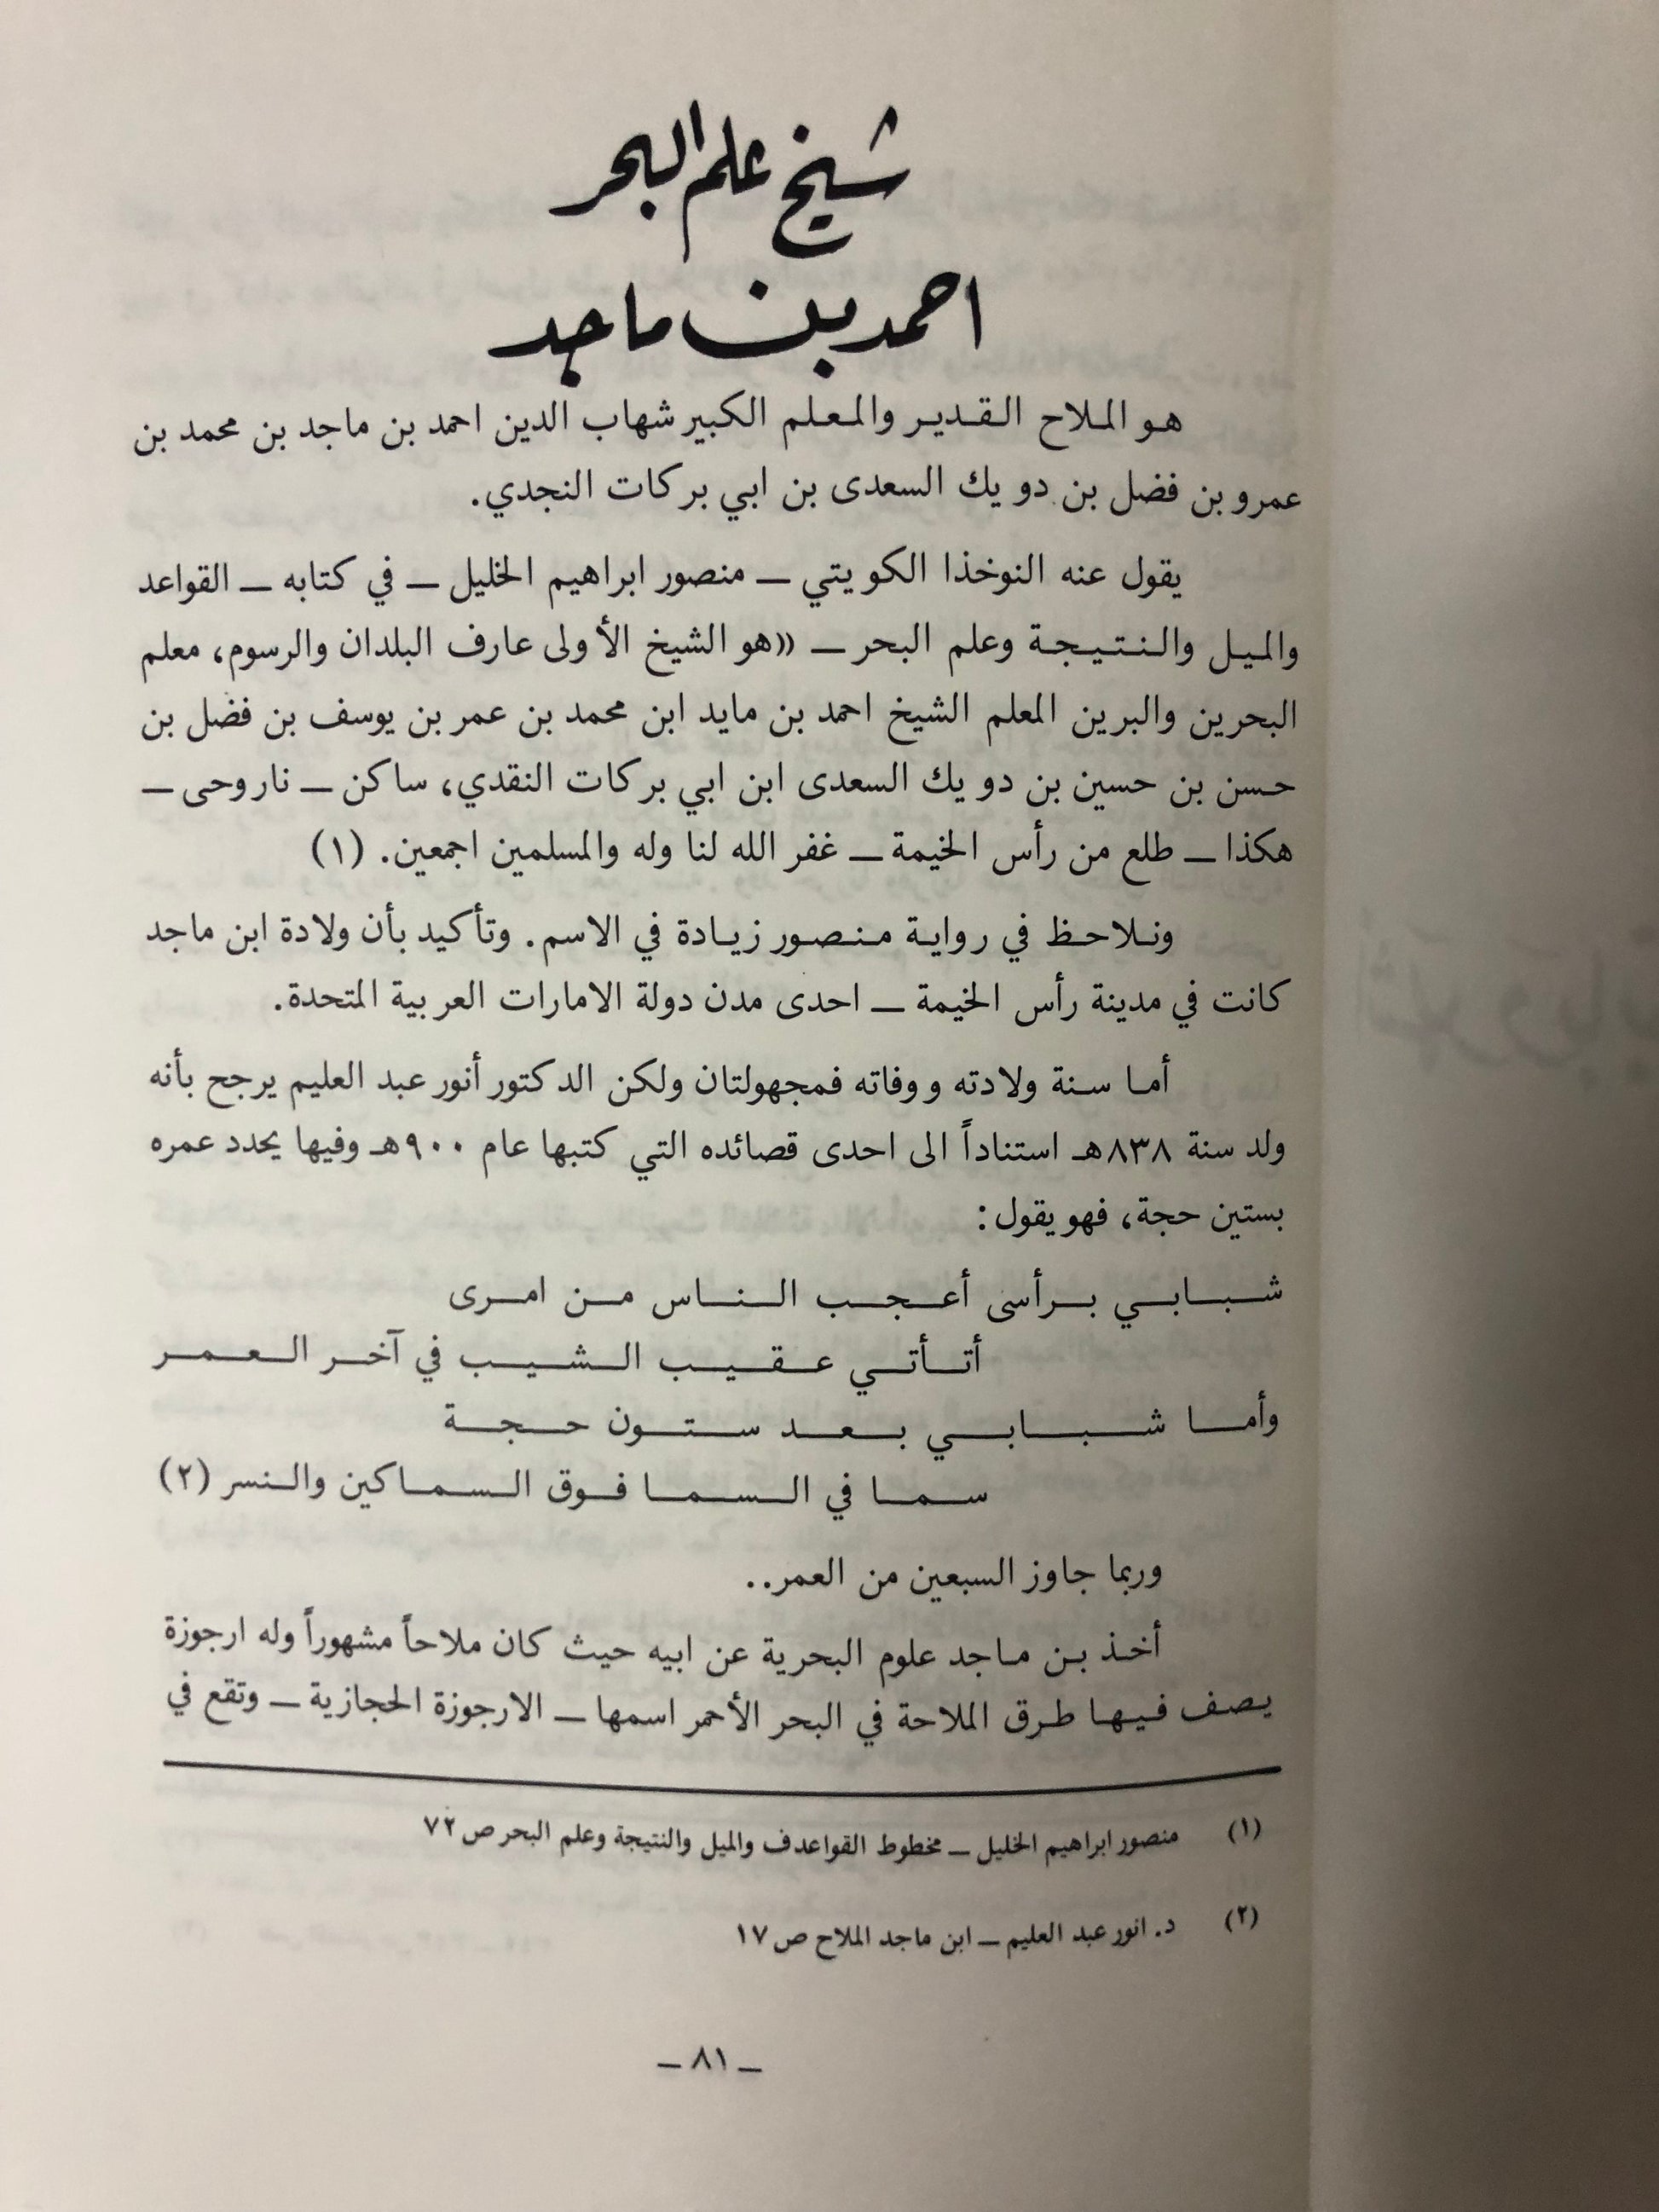 شيخ علم البحر
احمد بن ماجد
هو الملاح القدير والمعلم الكبير شهاب الدين احمد بن ماجد بن محمد بن
عمرو بن فضل بن دويك السعدى بن ابي بركات النجدي.
يقول عنه النوخذا الكويتي — منصور ابراهيم الخليل — في كتابه — القواعد
والميل والنتيجة وعلم البحر — «هو الشيخ الأولى عارف البلدان والرسوم، معلم
البحرين والبرين المعلم الشيخ احمد بن مايد ابن محمد بن عمر بن يوسف بن فضل بن
حسن بن حسين بن دويك السعدى ابن ابي بركات النقدي، ساكن — ناروحى —
هكذا — طلع من رأس الخيمة — غفر الله لنا وله والمسلمين اجمعين. (١)
ونلاحظ في رواية منصور زيادة في الاسم. وتأكيد بأن ولادة ابن ماجد
كانت في مدينة رأس الخيمة — احدى مدن دولة الامارات العربية المتحدة.
أما سنة ولادته ووفاته فمجهولتان ولكن الدكتور أنور عبد العليم يرجح بأنه
ولد سنة ٨٣٨هـ استناداً الى احدى قصائده التي كتبها عام ٩٠٠هـ وفيها يحدد عمره
بستين حجة، فهو يقول:
شبابي برأسى أعجب الناس من امرى
أتأتي عقيب الشيب في آخر العمر
وأما شبابي بعد ستون حجة
سما في السما فوق السماكين والنسر (٢)
وربما جاوز السبعين من العمر..
أخذ بن ماجد علوم البحرية عن ابيه حيث كان ملاحاً مشهوراً وله ارجوزة
يصف فيها طرق الملاحة في البحر الأحمر اسمها — الارجوزة الحجازية — وتقع في
(١) منصور ابراهيم الخليل — مخطوط القواعدف والميل والنتيجة وعلم البحر ص ٧٢
(٢) د. انور عبد العليم — ابن ماجد الملاح ص ١٧
— ٨١ —